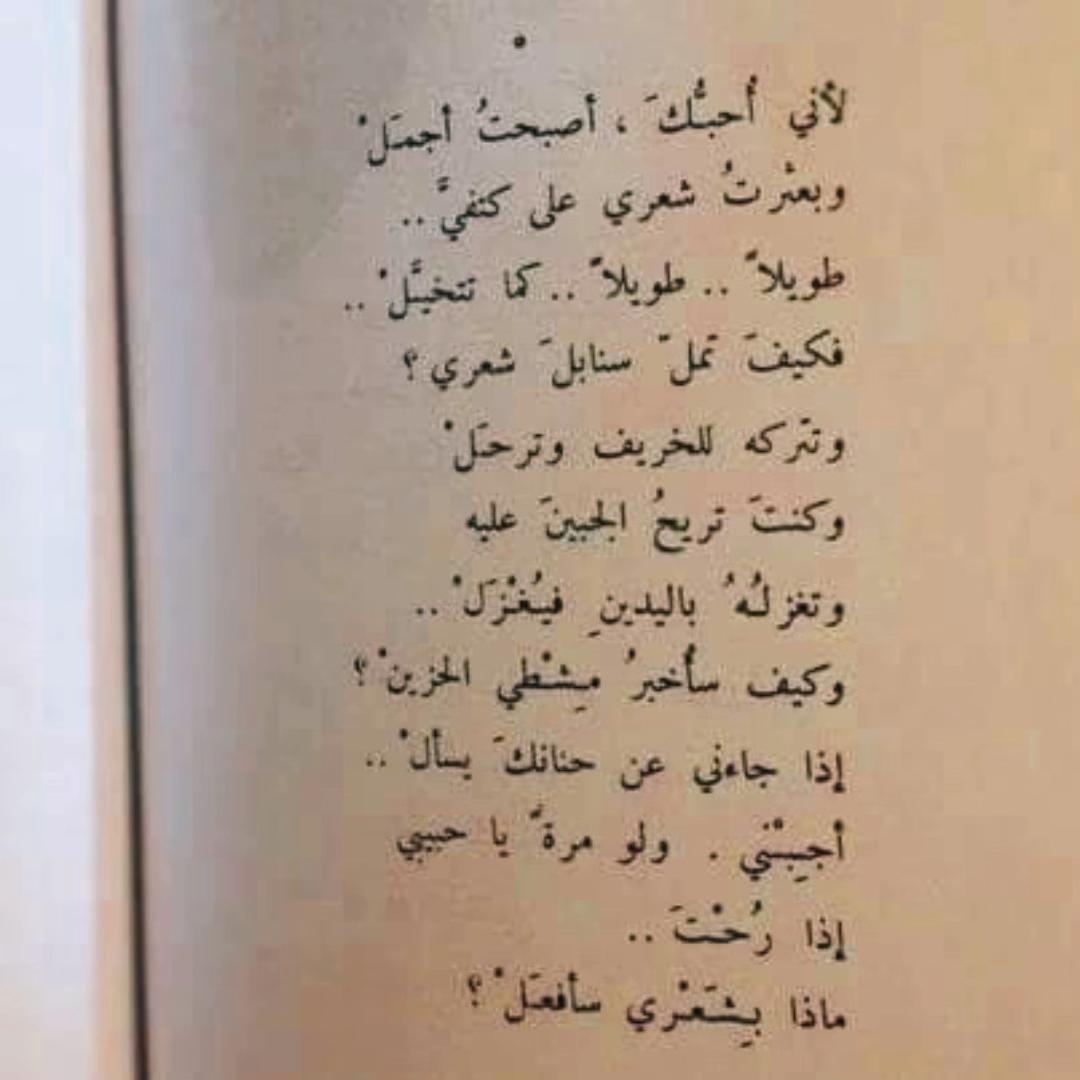 لأني أُحبُّكَ ، أصبحتُ أجمَلْ
وبعثرتُ شعري على كتفيَّ ..
طويلاً .. طويلاً .. كما تتخيَّلْ ..
فكيفَ تملّ سنابلَ شعري ؟
وتتركه للخريف وترحَلْ
وكنتَ تريحُ الجبينَ عليه
وتغزلُهُ باليدينِ فيُغْزَلْ ..
وكيف سأُخبرُ مِشْطي الحزينْ ؟
إذا جاءني عن حنانكَ يسألْ ..
أجِبْني . ولو مرةً يا حبيبي
إذا رُحْتَ ..
ماذا بِشَعْري سأفعَلْ ؟